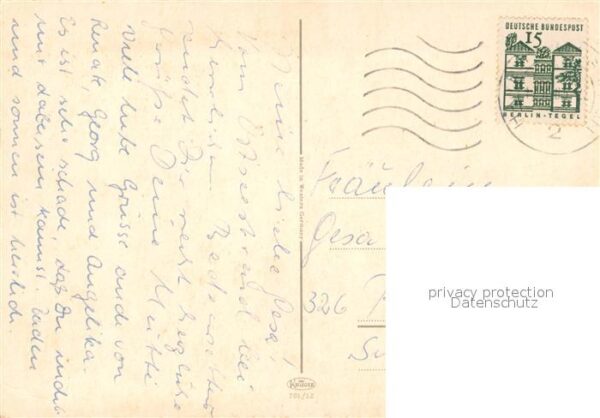 Meine liebe Gesa!
Vom Ostseestrand bei
herrlichem Badewetter
sendet Dir recht herzliche
Grüße Deine Mutti
Viele liebe Grüsse auch von
Renate, Georg und Angelika.
Es ist sehr schade, daß Du nicht
mit dabei sein kannst. Baden
und sonnen ist herrlich.
Made in Western Germany
KRÜGER
DEUTSCHE BUNDESPOST
15
BERLIN-TEGEL
2
Fräulein
Gesa
326
privacy protection
Datenschutz